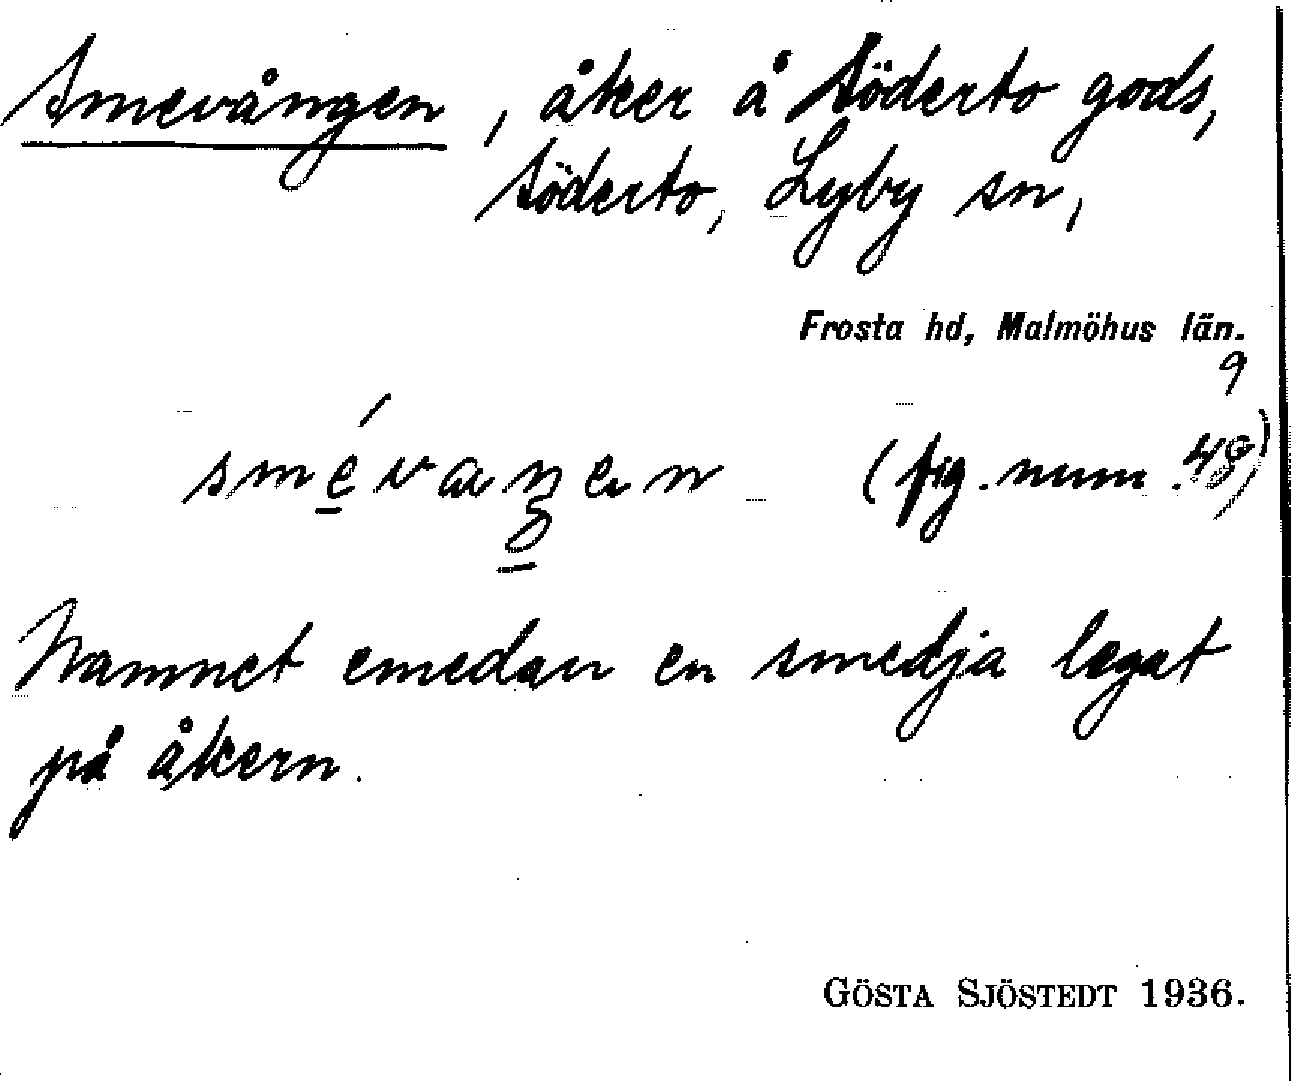 Smevången, åker å Söderto gods,
Söderto, Lyby sn,
Frosta hd, Malmöhus län.
9
(fig. num. 48)
Namnet emedan en smedja legat
på åkern.
GÖSTA SJÖSTEDT 1936.